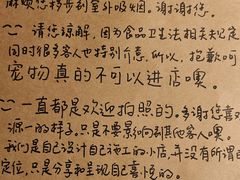 麻烦您移步到室外吸烟,谢谢您。
~ 请您谅解,因为食品卫生法相关规定
同时很多客人也特别介意,所以,抱歉呵
宠物真的不可以进店噢。
~ 一直都是欢迎拍照的。多谢您喜
源一的样子,只是不要影响到其他客人噢。
我们是自己设计自己施工的小店,并没有所谓的
定位,只是分享和呈现自己喜悦的。